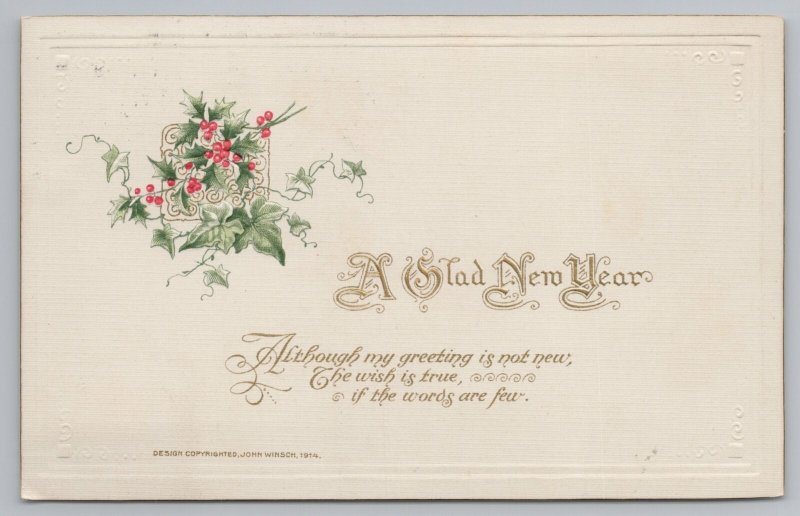 A Glad New Year
Although my greeting is not new,
The wish is true,
if the words are few.
DESIGN COPYRIGHTED, JOHN WINSCH, 1914.